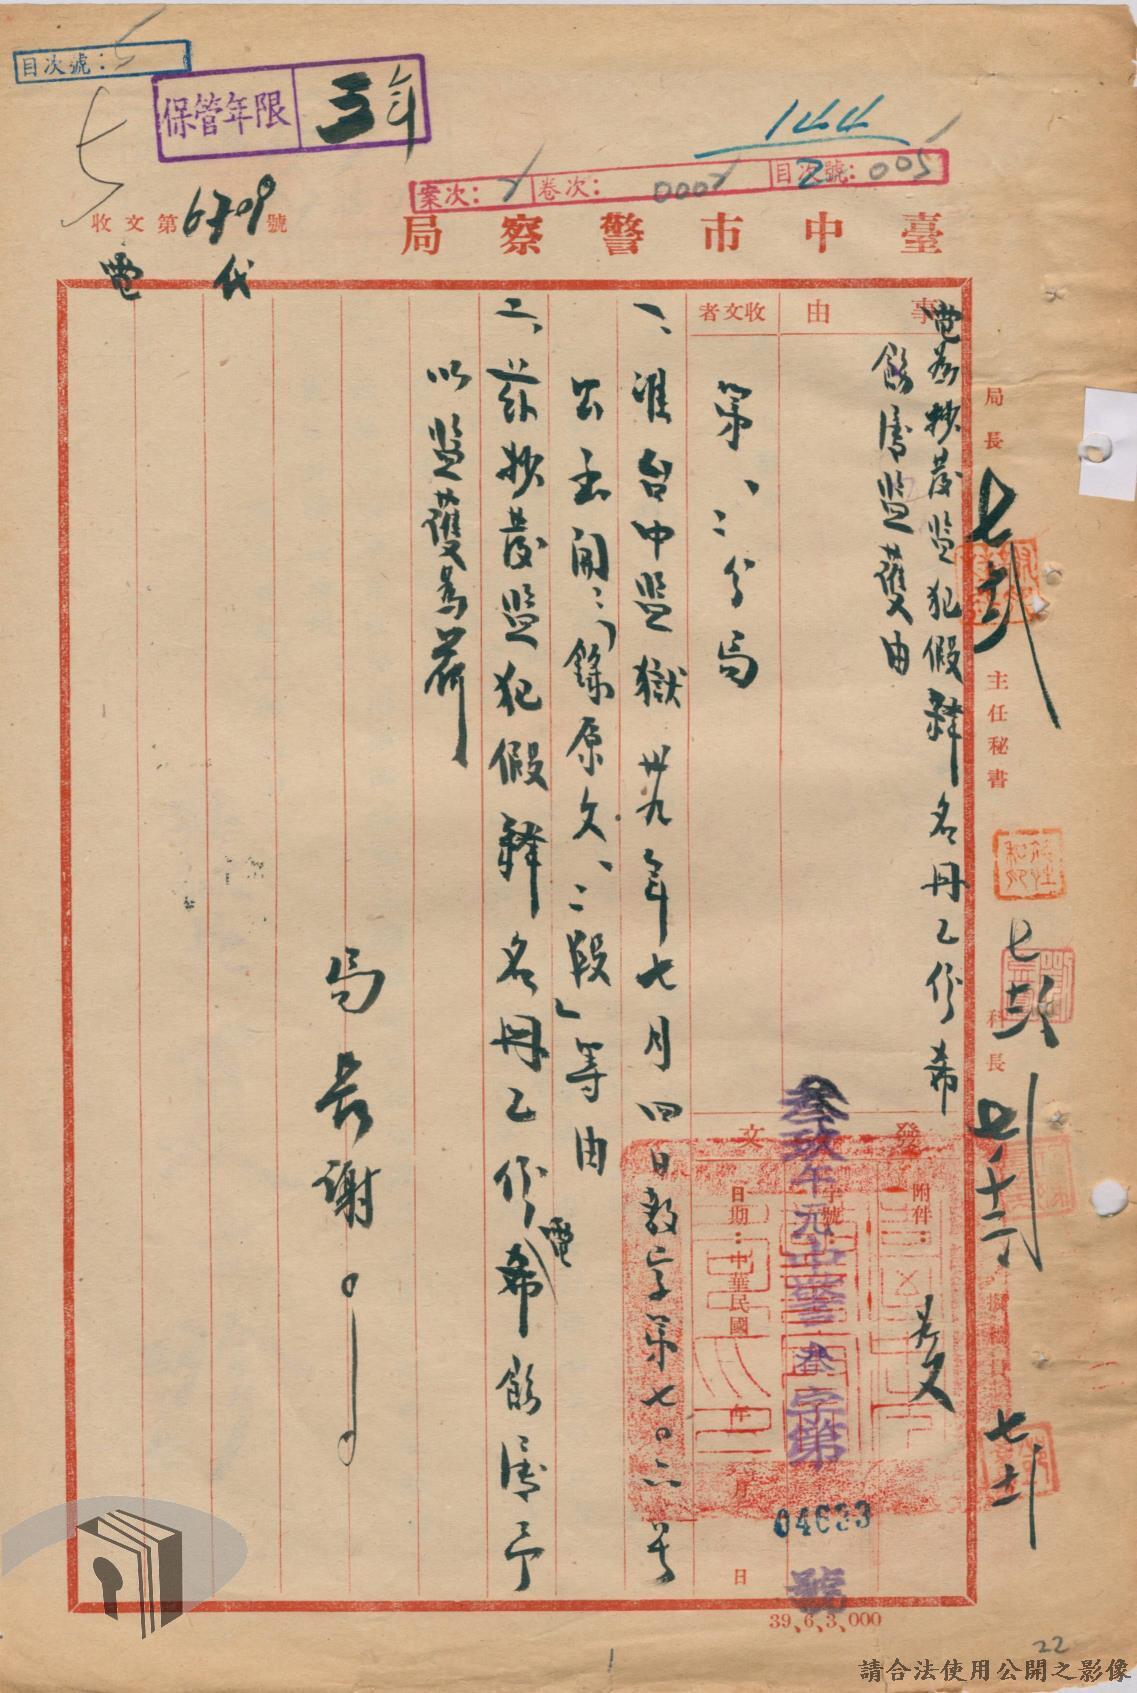 目次號：5
保管年限 三年
144
案次：2 卷次：0002 目次號：005
收文第6709號
臺中市警察局
代電
事由
電為抄發監犯假釋名冊乙份希
飭屬監護由
收文者
第一、二分局
發文
附件：
如文
字號
叁玖午元中警叁字第04633號
日期：中華民國 年 月 日
一、准台中監獄卅九年七月四日教字第七〇六號
公函開：「錄原文一、二段」等由
二、茲抄發監犯假釋名冊乙份電希飭屬予
以監護為荷
局長謝〇〇
局長
主任秘書
科長
擬稿員
39、6、3,000
22
請合法使用公開之影像